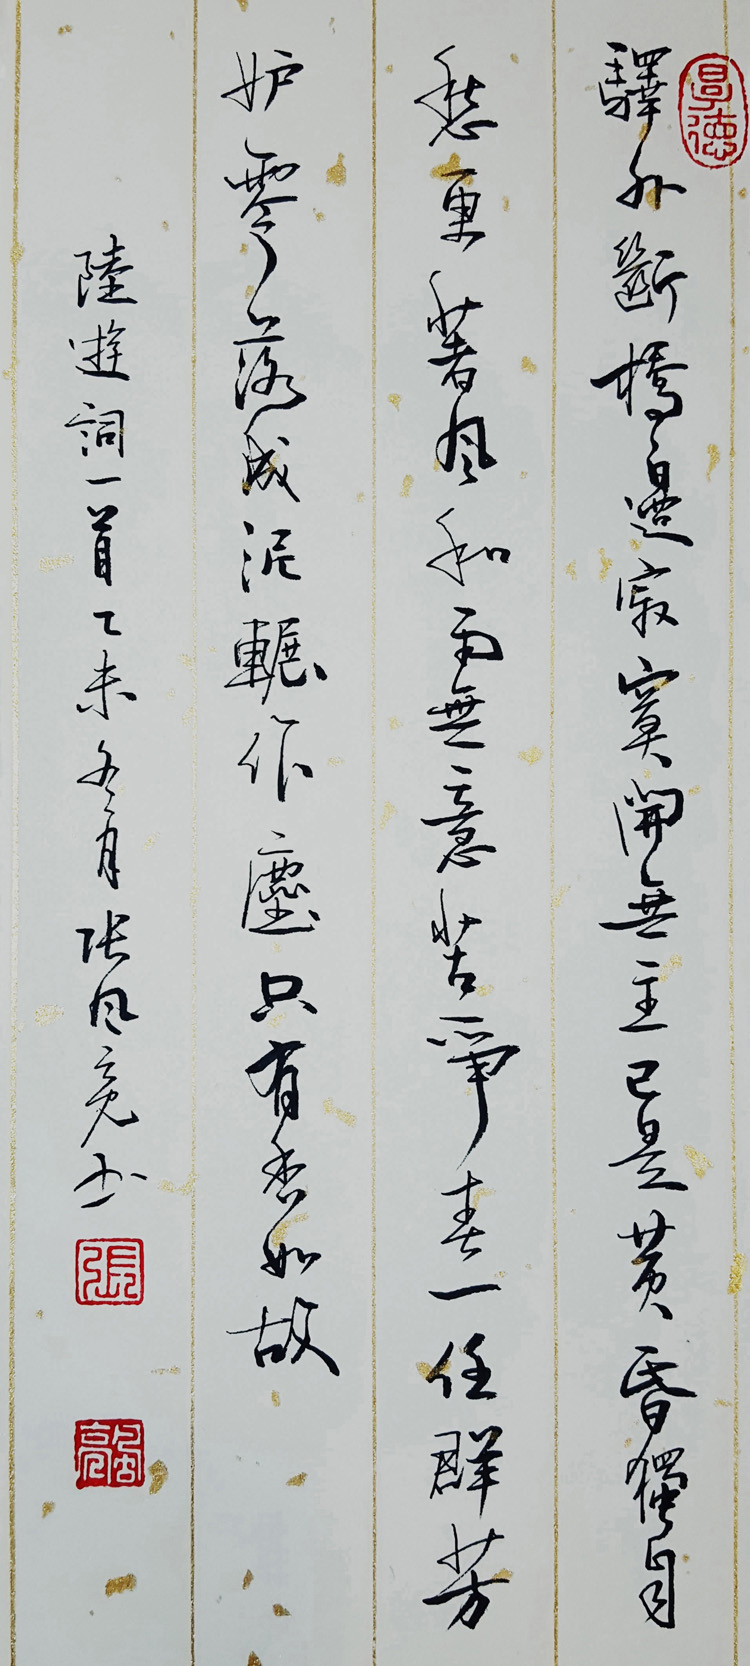 驛外斷橋邊寂寞開無主已是黃昏獨自
愁更著風和雨無意苦爭春一任群芳
妒零落成泥輾作塵只有香如故
陸遊詞一首乙未冬月張風亮书
張